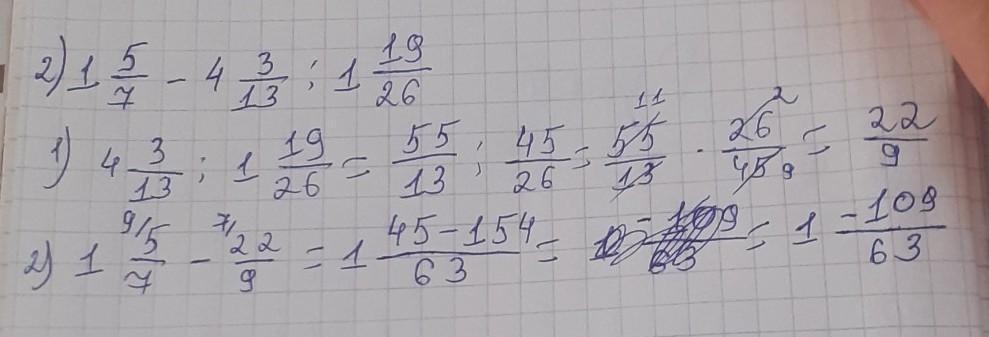 2) 1 5/7 - 4 3/13 : 1 19/26
1) 4 3/13 : 1 19/26 = 55/13 : 45/26 = 55 11/13 · 26 2/45 9 = 22/9
2) 1 9/ 5/7 - 7/ 22/9 = 1 45-154/63 = = 1 -109/63